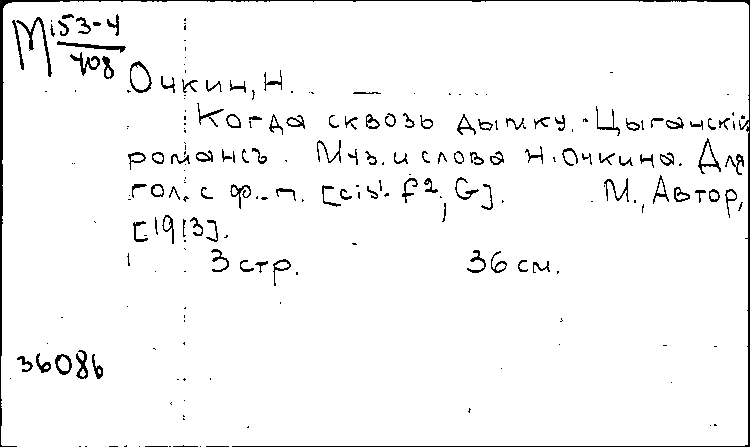 М 153-4
708
Очкин, Н.
Когда сквозь дымку. Цыганскій
романсъ. Муз. и слова Н. Очкина. Для
гол. с ф.-п. [cis¹-f², G]. М., Автор,
[1913].
3 стр. 36 см.
36086